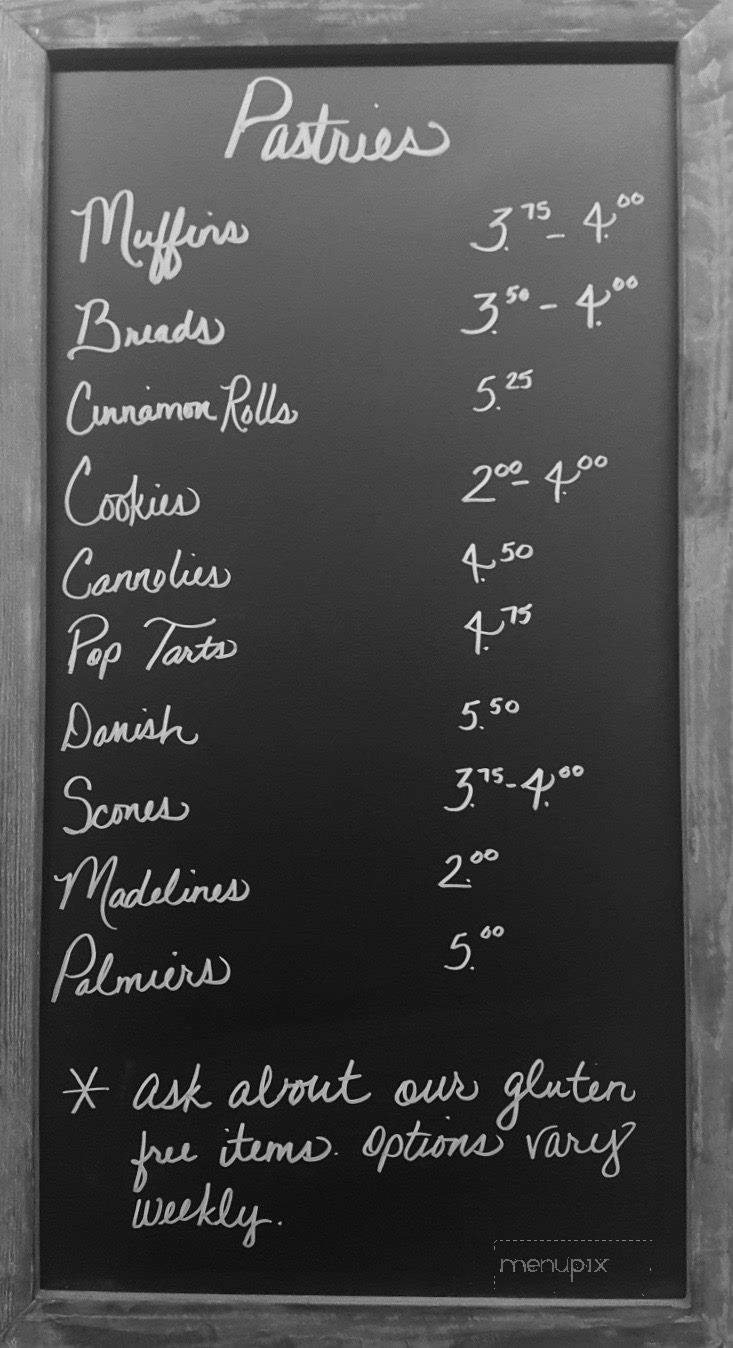 Pastries
Muffins 3.75 - 4.00
Breads 3.50 - 4.00
Cinnamon Rolls 5.25
Cookies 2.00 - 4.00
Cannolies 4.50
Pop Tarts 4.75
Danish 5.50
Scones 3.75 - 4.00
Madelines 2.00
Palmiers 5.00
* ask about our gluten
free items. Options vary
weekly.
menupix